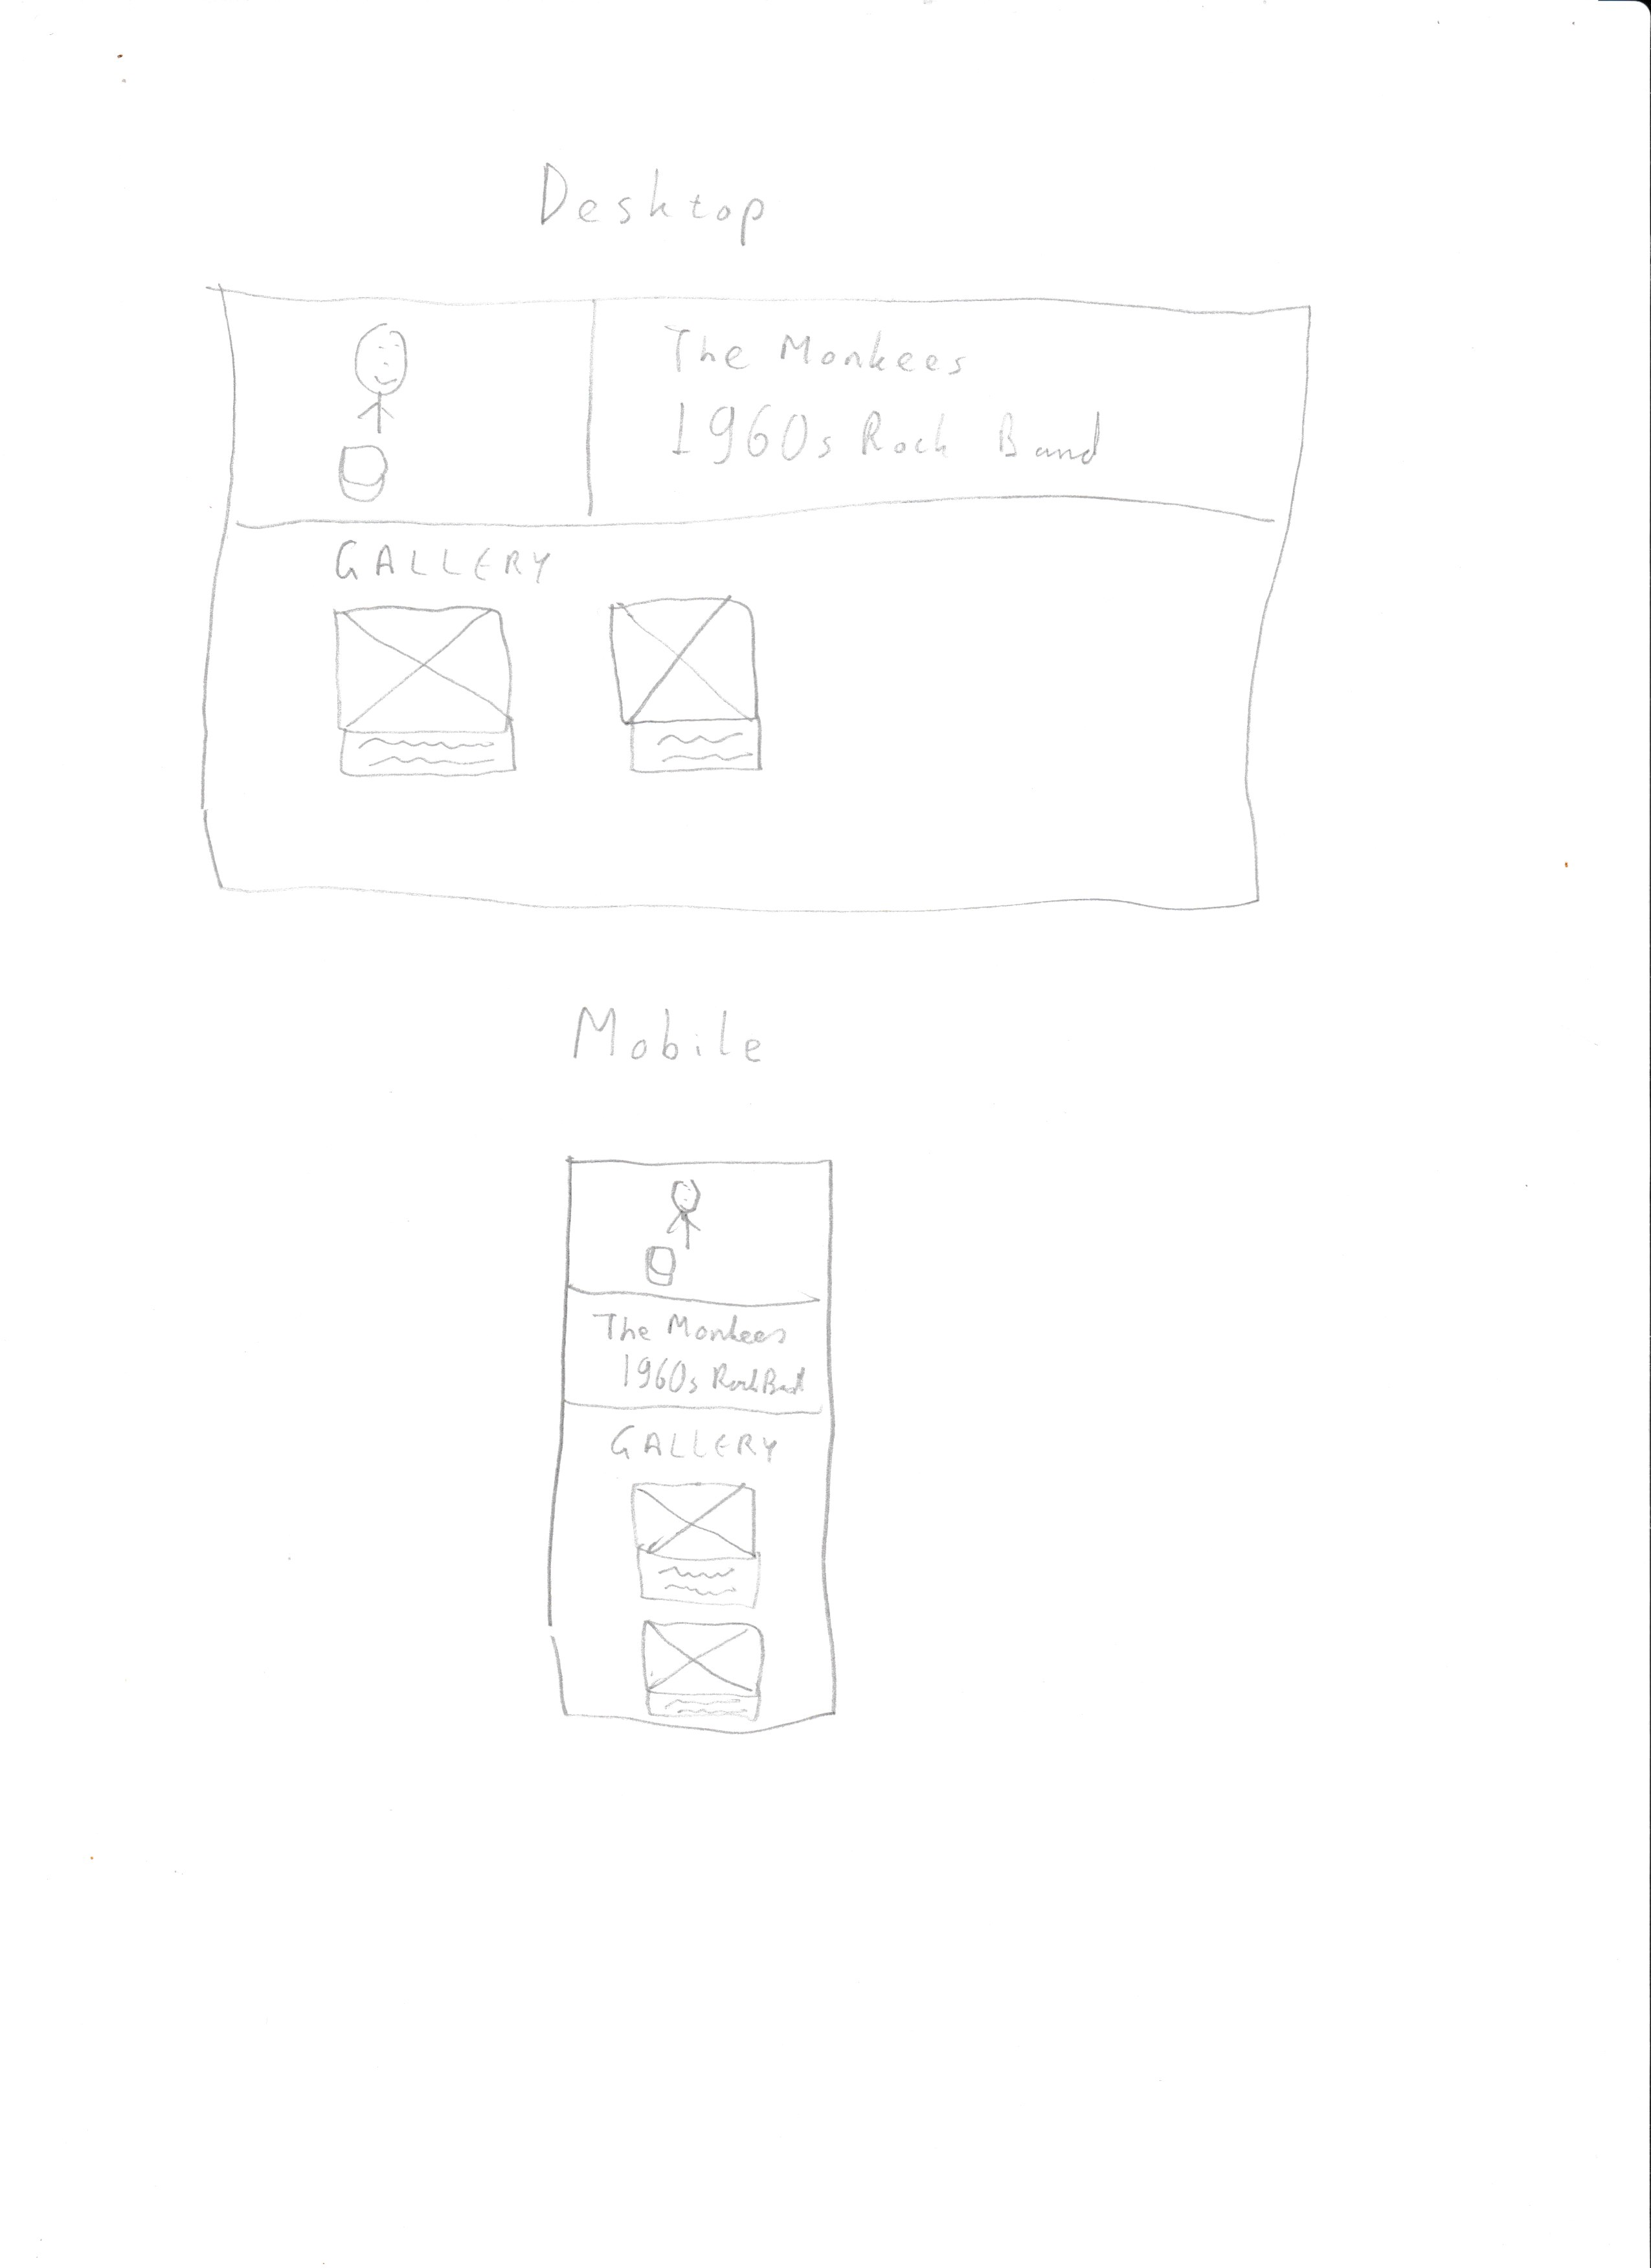 Desktop
The Monkees
1960s Rock Band
GALLERY
Mobile
The Monkees
1960s Rock Band
GALLERY